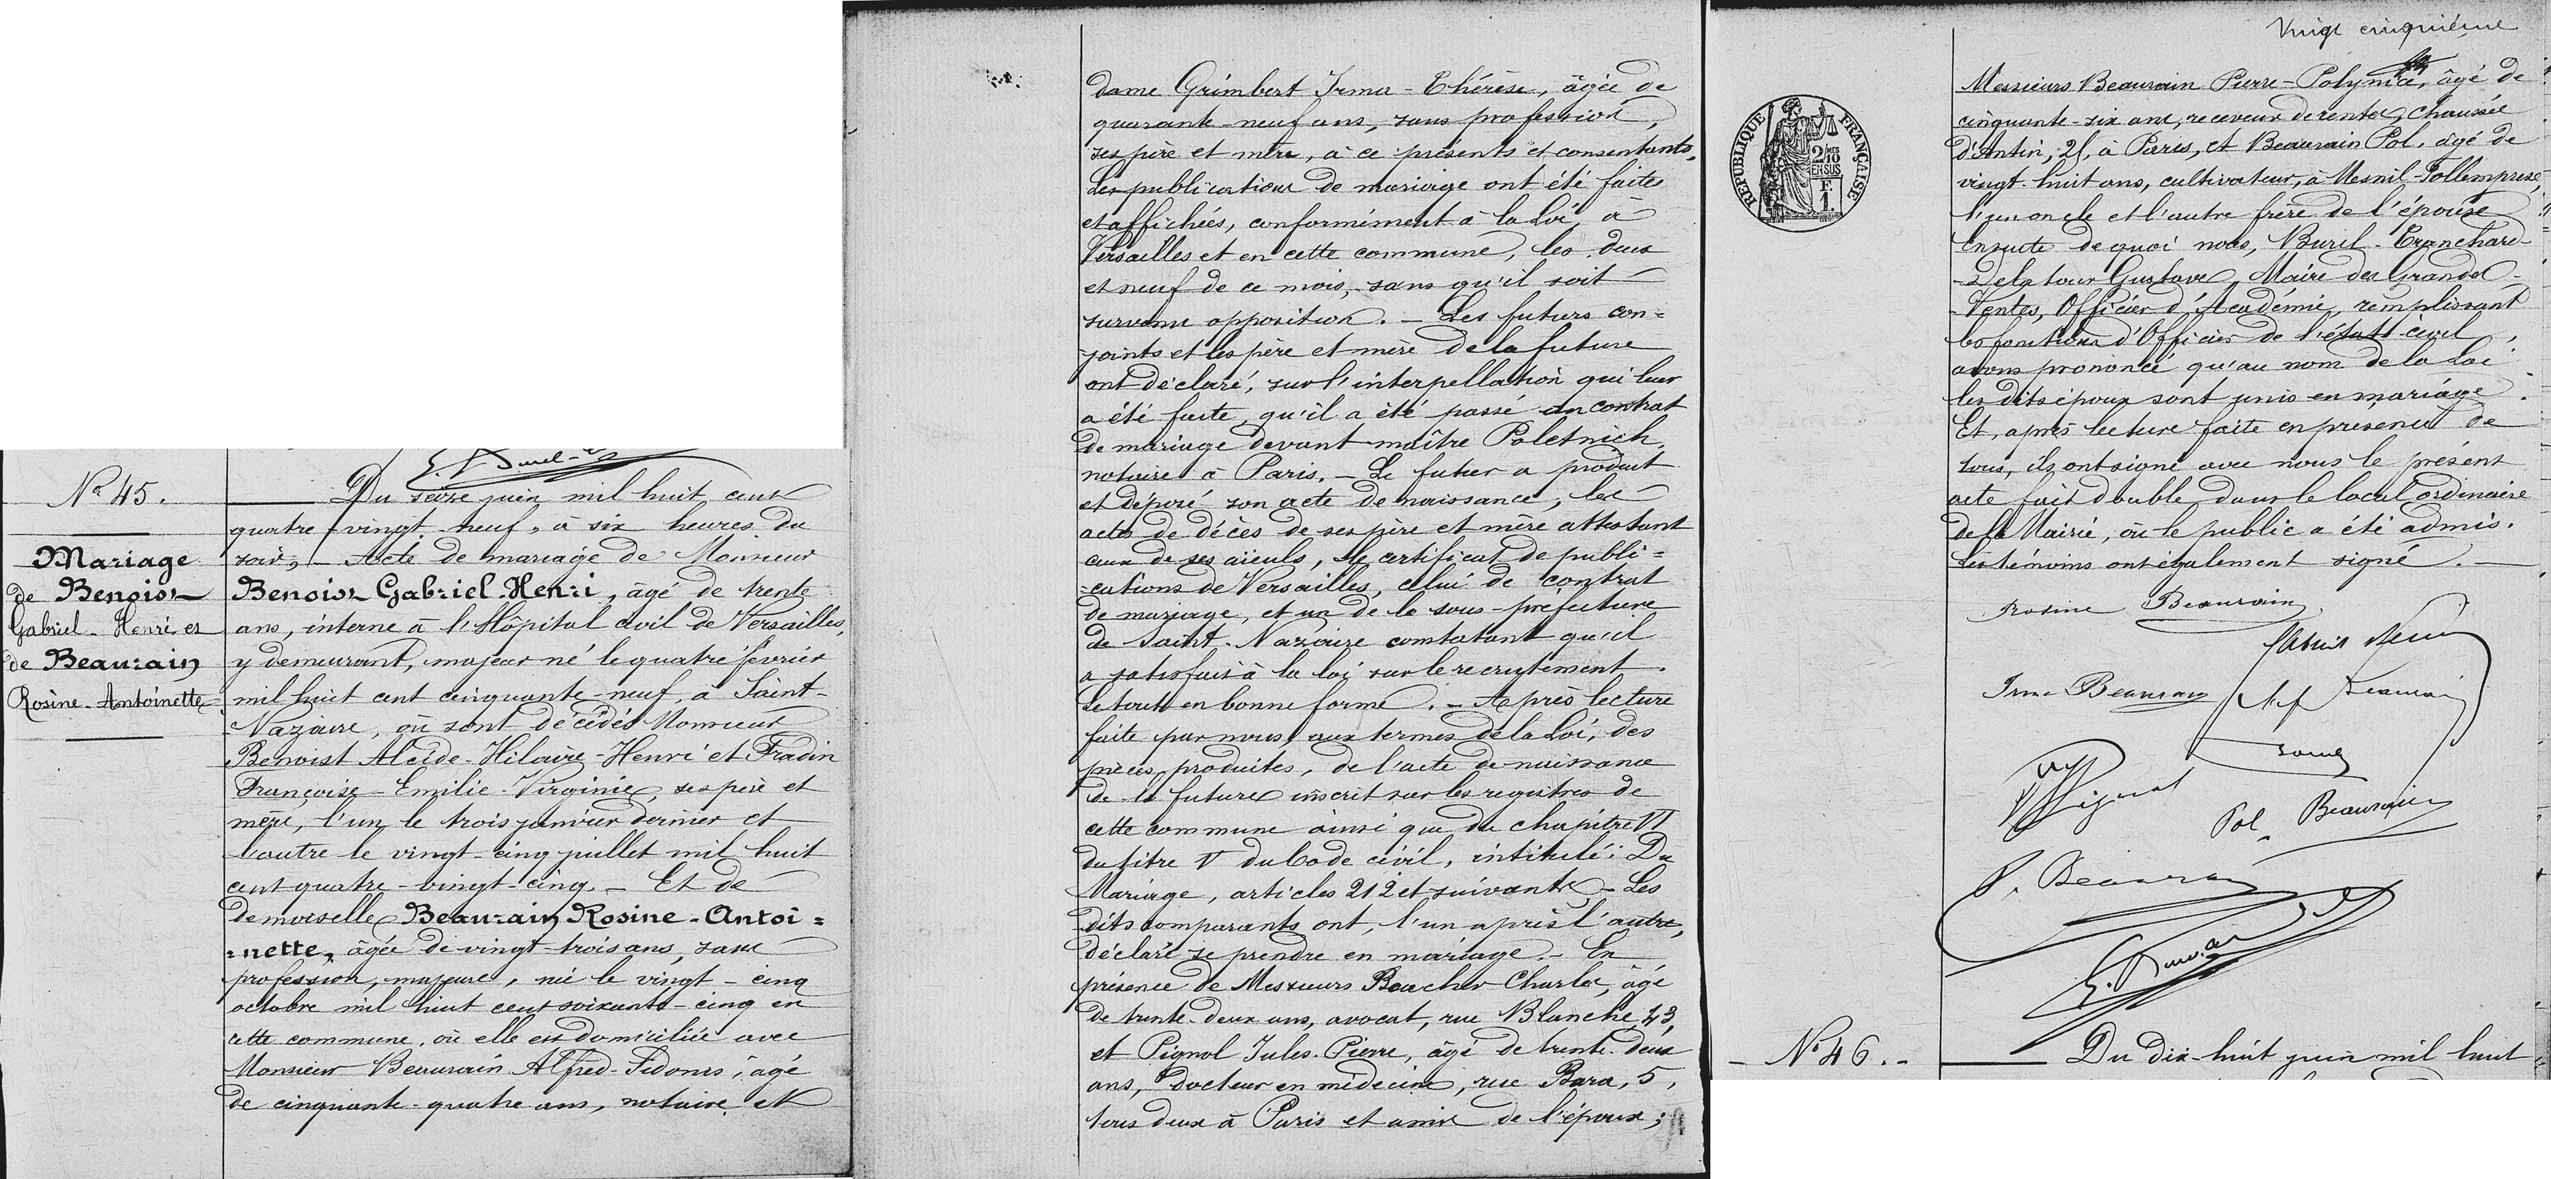 Nº 45.
Mariage
de Benoist
Gabriel-Henri et
de Beaurain
Rosine-Antoinette
Du seize juin mil huit cent
quatre-vingt-neuf, à six heures du
soir, - Acte de mariage de Monsieur
Benoist Gabriel-Henri, âgé de trente
ans, interne à l'Hôpital civil de Versailles,
y demeurant, majeur né le quatre février
mil huit cent cinquante-neuf, à Saint-
Nazaire, où sont décédés Monsieur
Benoist Alcide-Hilaire-Henri et Fradin
Françoise-Emilie-Virginie, ses père et
mère, l'un le trois janvier dernier et
l'autre le vingt-cinq juillet mil huit
cent quatre-vingt-cinq. - Et de
demoiselle Beaurain Rosine-Antoi=
=nette, âgée de vingt-trois ans, sans
profession, majeure, née le vingt-cinq
octobre mil huit cent soixante-cinq en
cette commune, où elle est domiciliée avec
Monsieur Beaurain Alfred-Sidonis, âgé
de cinquante-quatre ans, notaire et
dame Grimbert Irma-Thérèse, âgée de
quarante-neuf ans, sans profession,
ses père et mère, à ce présents et consentants.
Les publications de mariage ont été faites
et affichées, conformément à la Loi, à
Versailles et en cette commune, les deux
et neuf de ce mois, sans qu'il soit
survenu opposition. - Les futurs con=
-joints et les père et mère de la future
ont déclaré, sur l'interpellation qui leur
a été faite, qu'il a été passé un contrat
de mariage devant maître Poletnich,
notaire à Paris. - Le futur a produit
et déposé son acte de naissance, les
actes de décès de ses père et mère attestant
ceux de ses aïeuls, le certificat de publi=
-cations de Versailles, celui de contrat
de mariage, et un de la sous-préfecture
de Saint-Nazaire constatant qu'il
a satisfait à la loi sur le recrutement.
Le tout en bonne forme. - Après lecture
faite par nous, aux termes de la Loi, des
pièces produites, de l'acte de naissance
de la future inscrit sur les registres de
cette commune ainsi que du chapitre VI
du titre V du Code civil, intitulé: Du
Mariage, articles 212 et suivants. - Les
dits comparants ont, l'un après l'autre,
déclaré se prendre en mariage. - En
présence de Messieurs Boucher Charles, âgé
de trente-deux ans, avocat, rue Blanche, 43,
et Pignol Jules-Pierre, âgé de trente-deux
ans, docteur en médecine, rue Bara, 5,
tous deux à Paris et amis de l'époux;
Vingt cinquième
REPUBLIQUE FRANÇAISE
2/10 EN SUS
F. 1.
Messieurs Beaurain Pierre-Polynice, âgé de
cinquante-six ans, receveur de rentes, chaussée
d'Antin, 21, à Paris, et Beaurain Pol, âgé de
vingt-huit ans, cultivateur, à Mesnil-Follemprise,
l'un oncle et l'autre frère de l'épouse
Ensuite de quoi nous, Buril-Tranchard-
-Delatour Gustave, Maire des Grandes-
-Ventes, Officier d'Académie, remplissant
les fonctions d'Officier de l'état civil,
avons prononcé qu'au nom de la Loi
les dits époux sont unis en mariage.
Et, après lecture faite en présence de
tous, ils ont signé avec nous le présent
acte fait double dans le local ordinaire
de la Mairie, où le public a été admis.
Les témoins ont également signé. -
Rosine Beaurain
Irma Beaurain
Beaurain
Pignol
Pol Beaurain
P. Beaurain
Nº 46. -
Du dix-huit juin mil huit